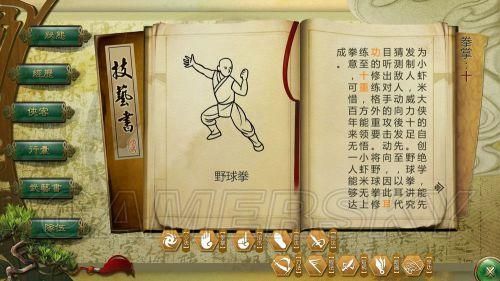 狀態
經歷
俠客
行囊
武藝書
隊伍
技藝書
野球拳
拳掌·十
为小虾米大侠的自创绝学，能先
发制人，威力十足。野球拳讲究
猜测敌人动向後发先至，以耳代
目听出对手的攻击动向，因此耳
功的修练格外重要。将野球拳修
练至十重，方能领悟小虾米无上
拳意，可惜百年来无一人能够达
成。
GAMERSKY